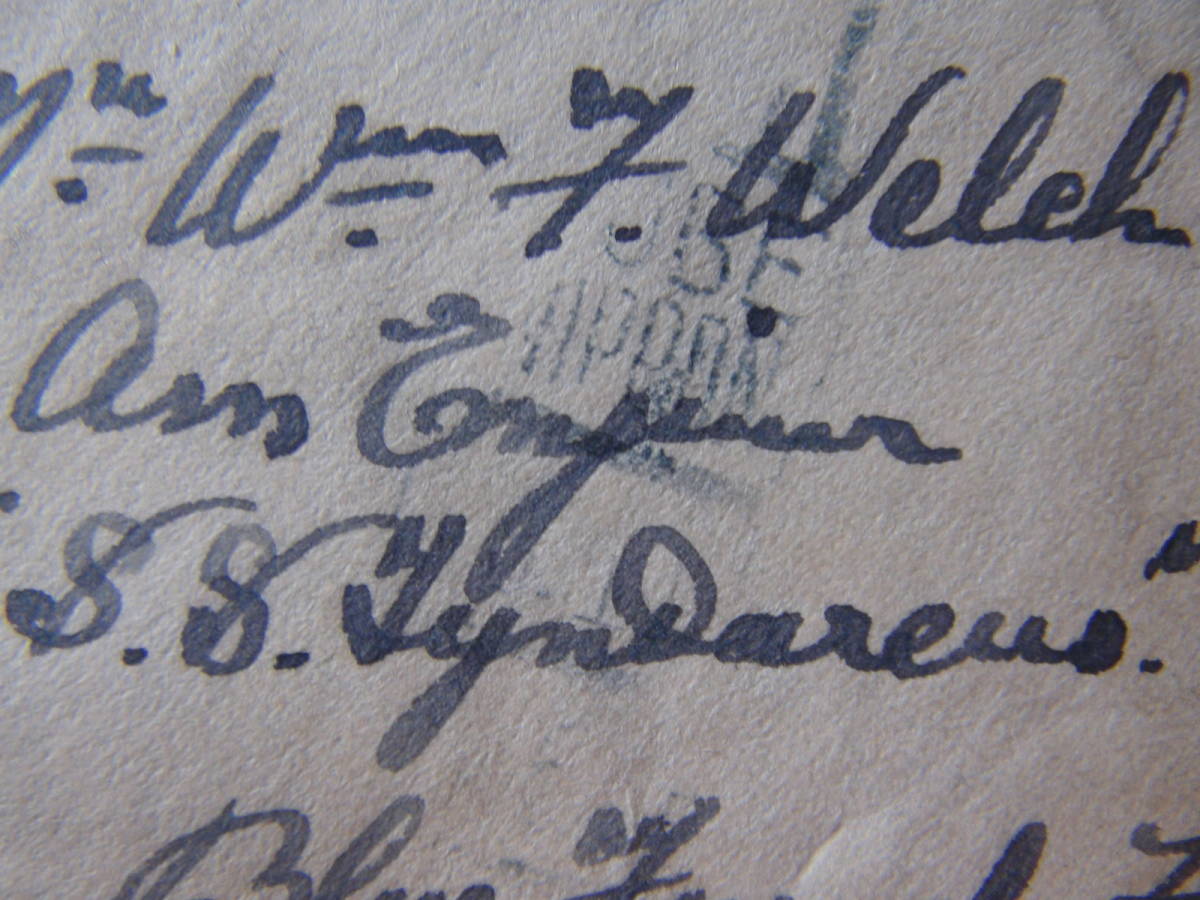 Mr. Wm. F. Welch
Ass Engineer
"S. S. Tyndareus."
Blue Funnel